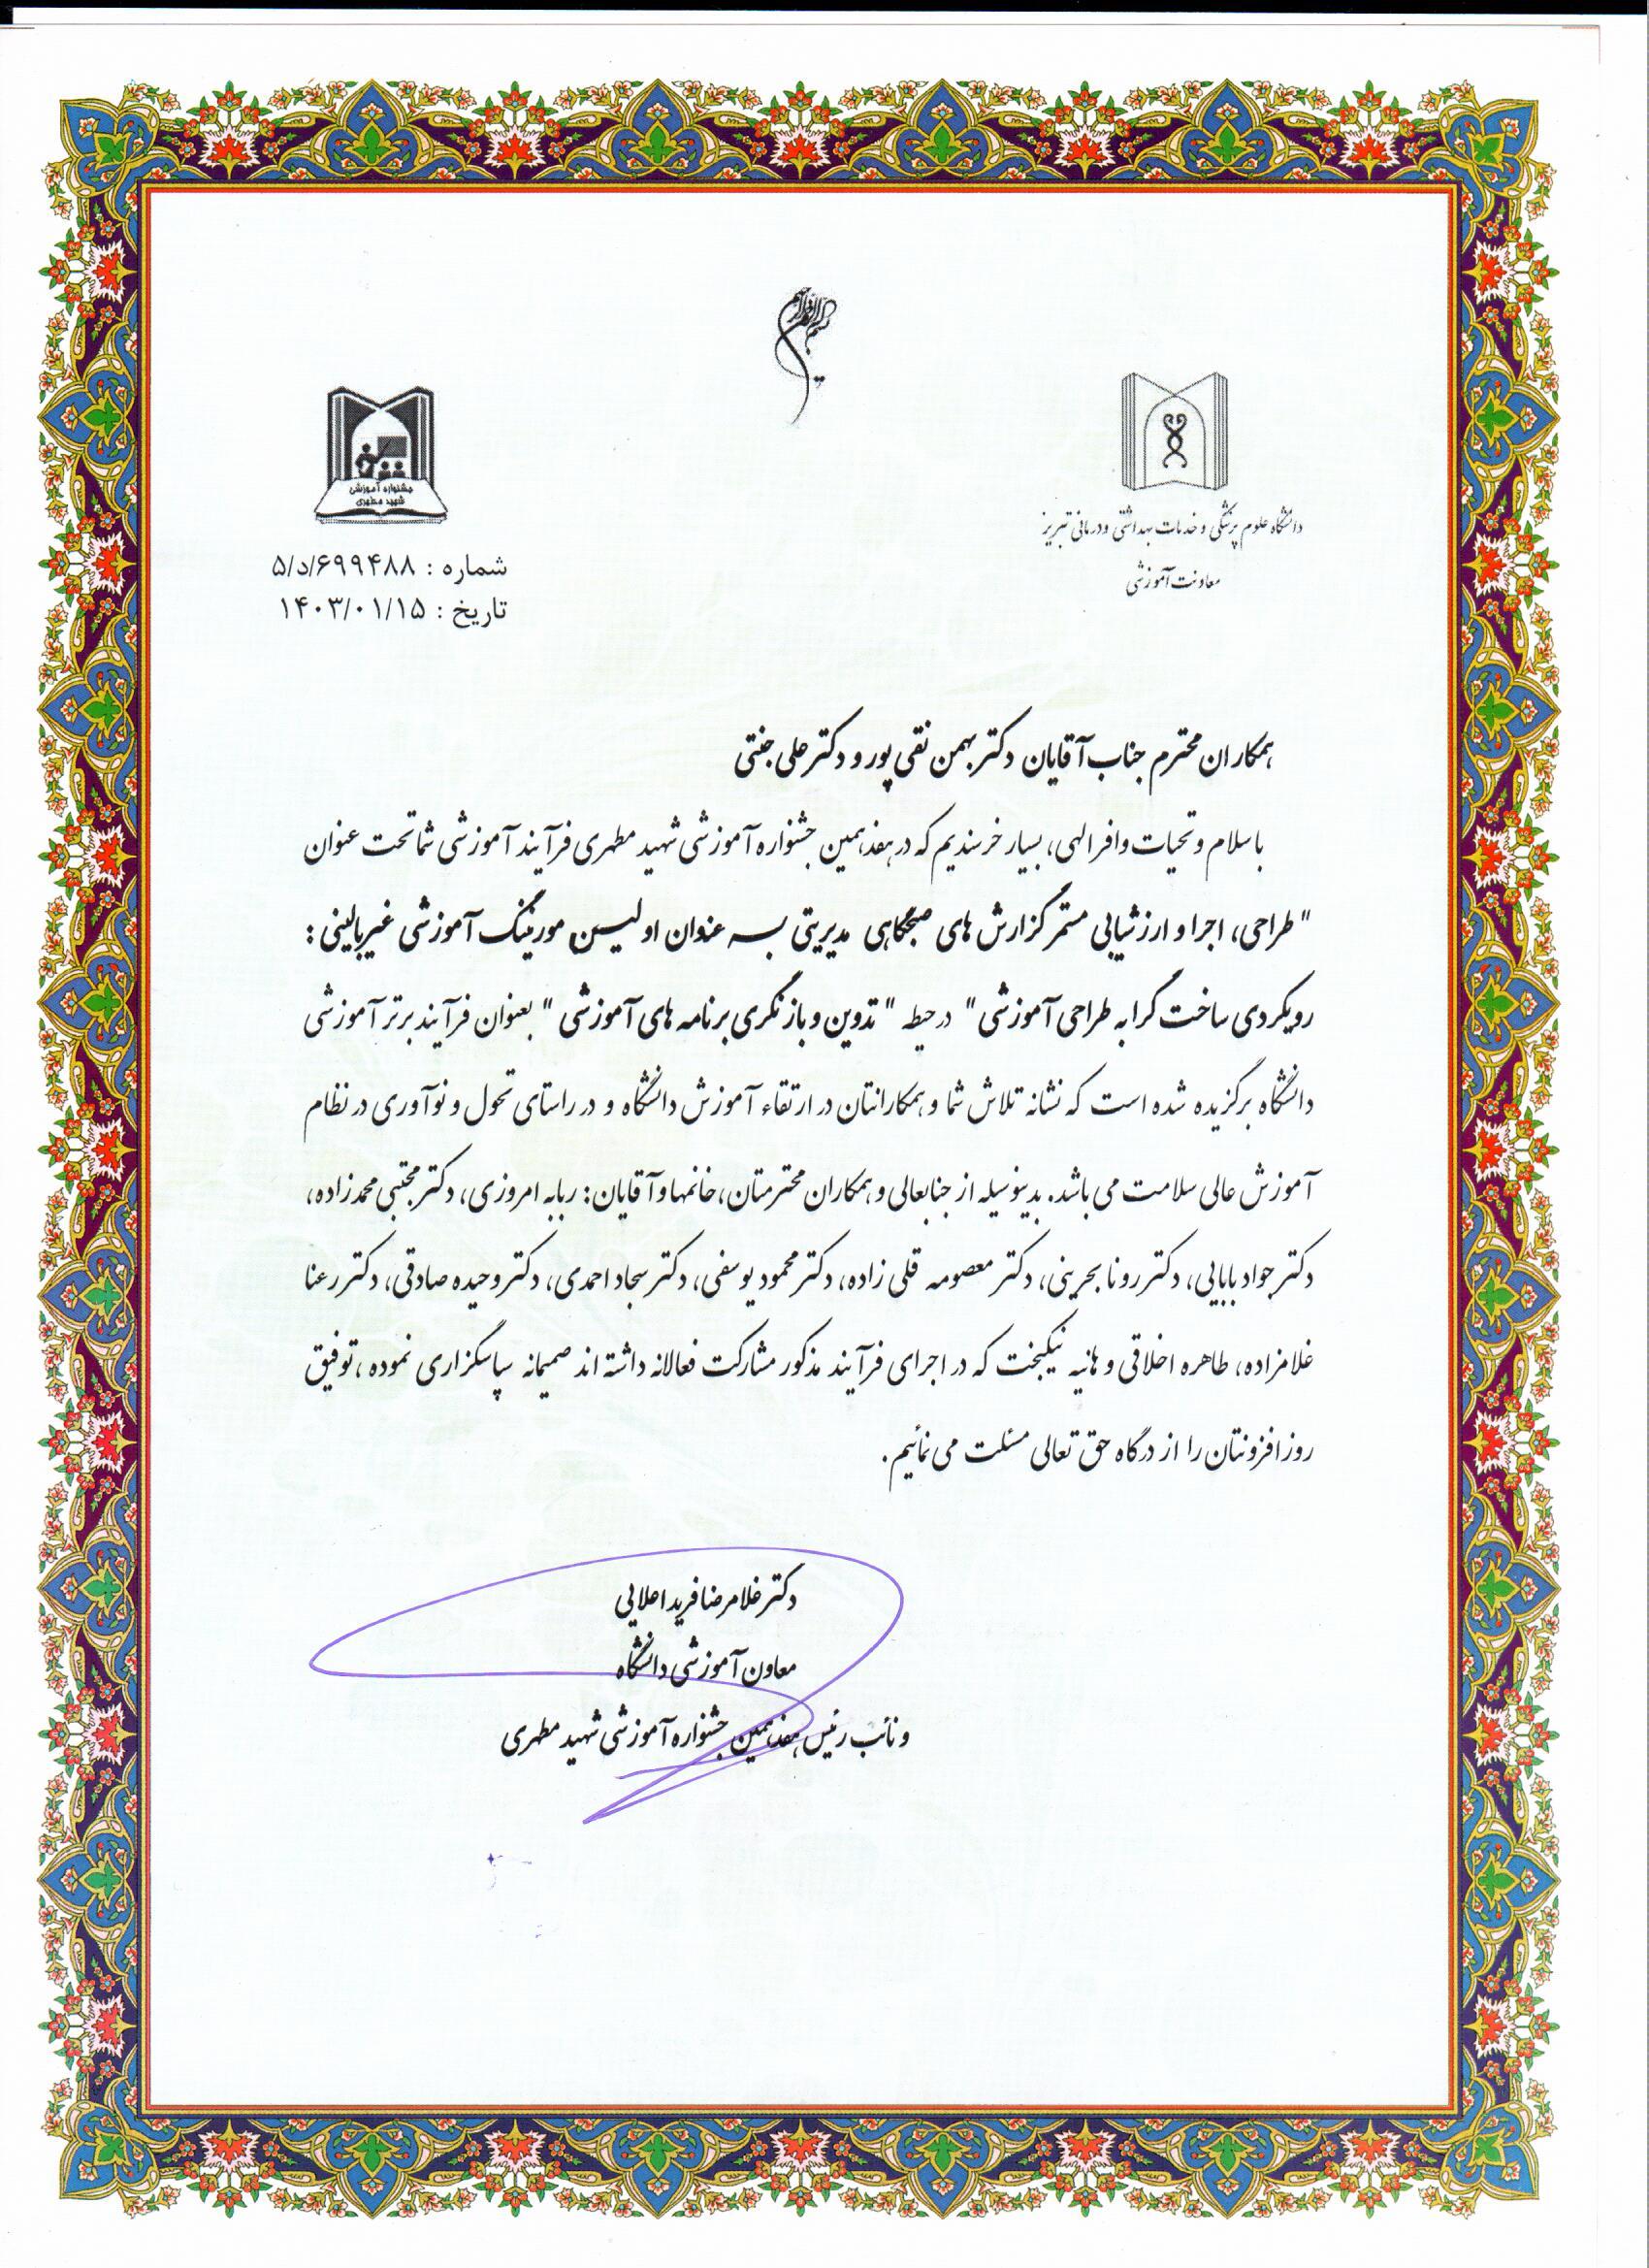 بسم الله الرحمن الرحیم
جشنواره آموزشی
شهید مطهری
دانشگاه علوم پزشکی و خدمات بهداشتی و درمانی تبریز
معاونت آموزشی
شماره : ۵/د/۶۹۹۴۸۸
تاریخ : ۱۴۰۳/۰۱/۱۵
همکاران محترم جناب آقایان دکتر بهمن نقی پور و دکتر علی جنتی
با سلام و تحیات وافر الهی، بسیار خرسندیم که در هفدهمین جشنواره آموزشی شهید مطهری فرآیند آموزشی شما تحت عنوان
" طراحی، اجرا و ارزشیابی مستمر گزارش های صبحگاهی مدیریتی به عنوان اولین مورنینگ آموزشی غیربالینی :
رویکردی ساخت گرا به طراحی آموزشی " در حیطه " تدوین و بازنگری برنامه های آموزشی " بعنوان فرآیند برتر آموزشی
دانشگاه برگزیده شده است که نشانه تلاش شما و همکارانتان در ارتقاء آموزش دانشگاه و در راستای تحول و نوآوری در نظام
آموزش عالی سلامت می باشد. بدینوسیله از جنابعالی و همکاران محترمتان، خانمها و آقایان: ربابه امروزی، دکتر مجتبی محمدزاده،
دکتر جواد بابایی، دکتر رونا بحرینی، دکتر معصومه قلی زاده، دکتر محمود یوسفی، دکتر سجاد احمدی، دکتر وحیده صادقی، دکتر رعنا
غلامزاده، طاهره اخلاقی و هانیه نیکبخت که در اجرای فرآیند مذکور مشارکت فعالانه داشته اند صمیمانه سپاسگزاری نموده ، توفیق
روزافزونتان را از درگاه حق تعالی مسئلت می نمائیم.
دکتر غلامرضا فرید اعلایی
معاون آموزشی دانشگاه
و نائب رئیس هفدهمین جشنواره آموزشی شهید مطهری